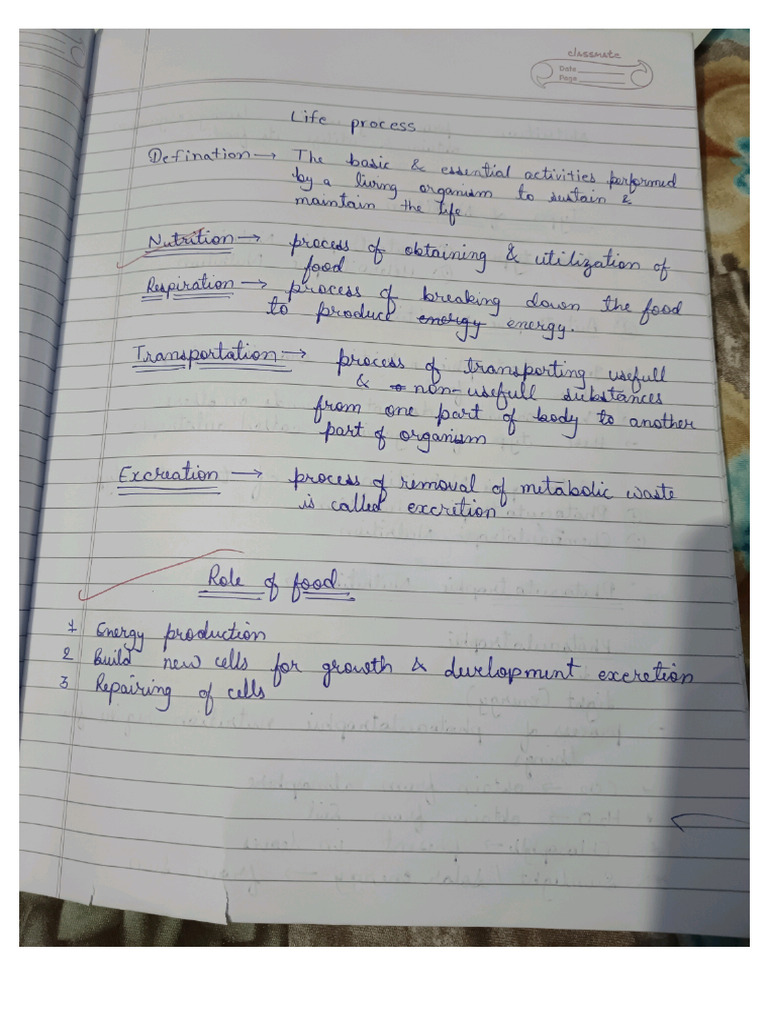 classmate
Date
Page
Life process
Defination → The basic & essential activities performed
by a living organism to sustain &
maintain the life
Nutrition → process of obtaining & utilization of
food
Respiration → process of breaking down the food
to produce energy energy.
Transportation → process of transporting usefull
& non-usefull substances
from one part of body to another
part of organism
Excreation → process of removal of metabolic waste
is called excretion
Role of food
1 Energy production
2 Build new cells for growth & durlopment excretion
3 Repairing of cells